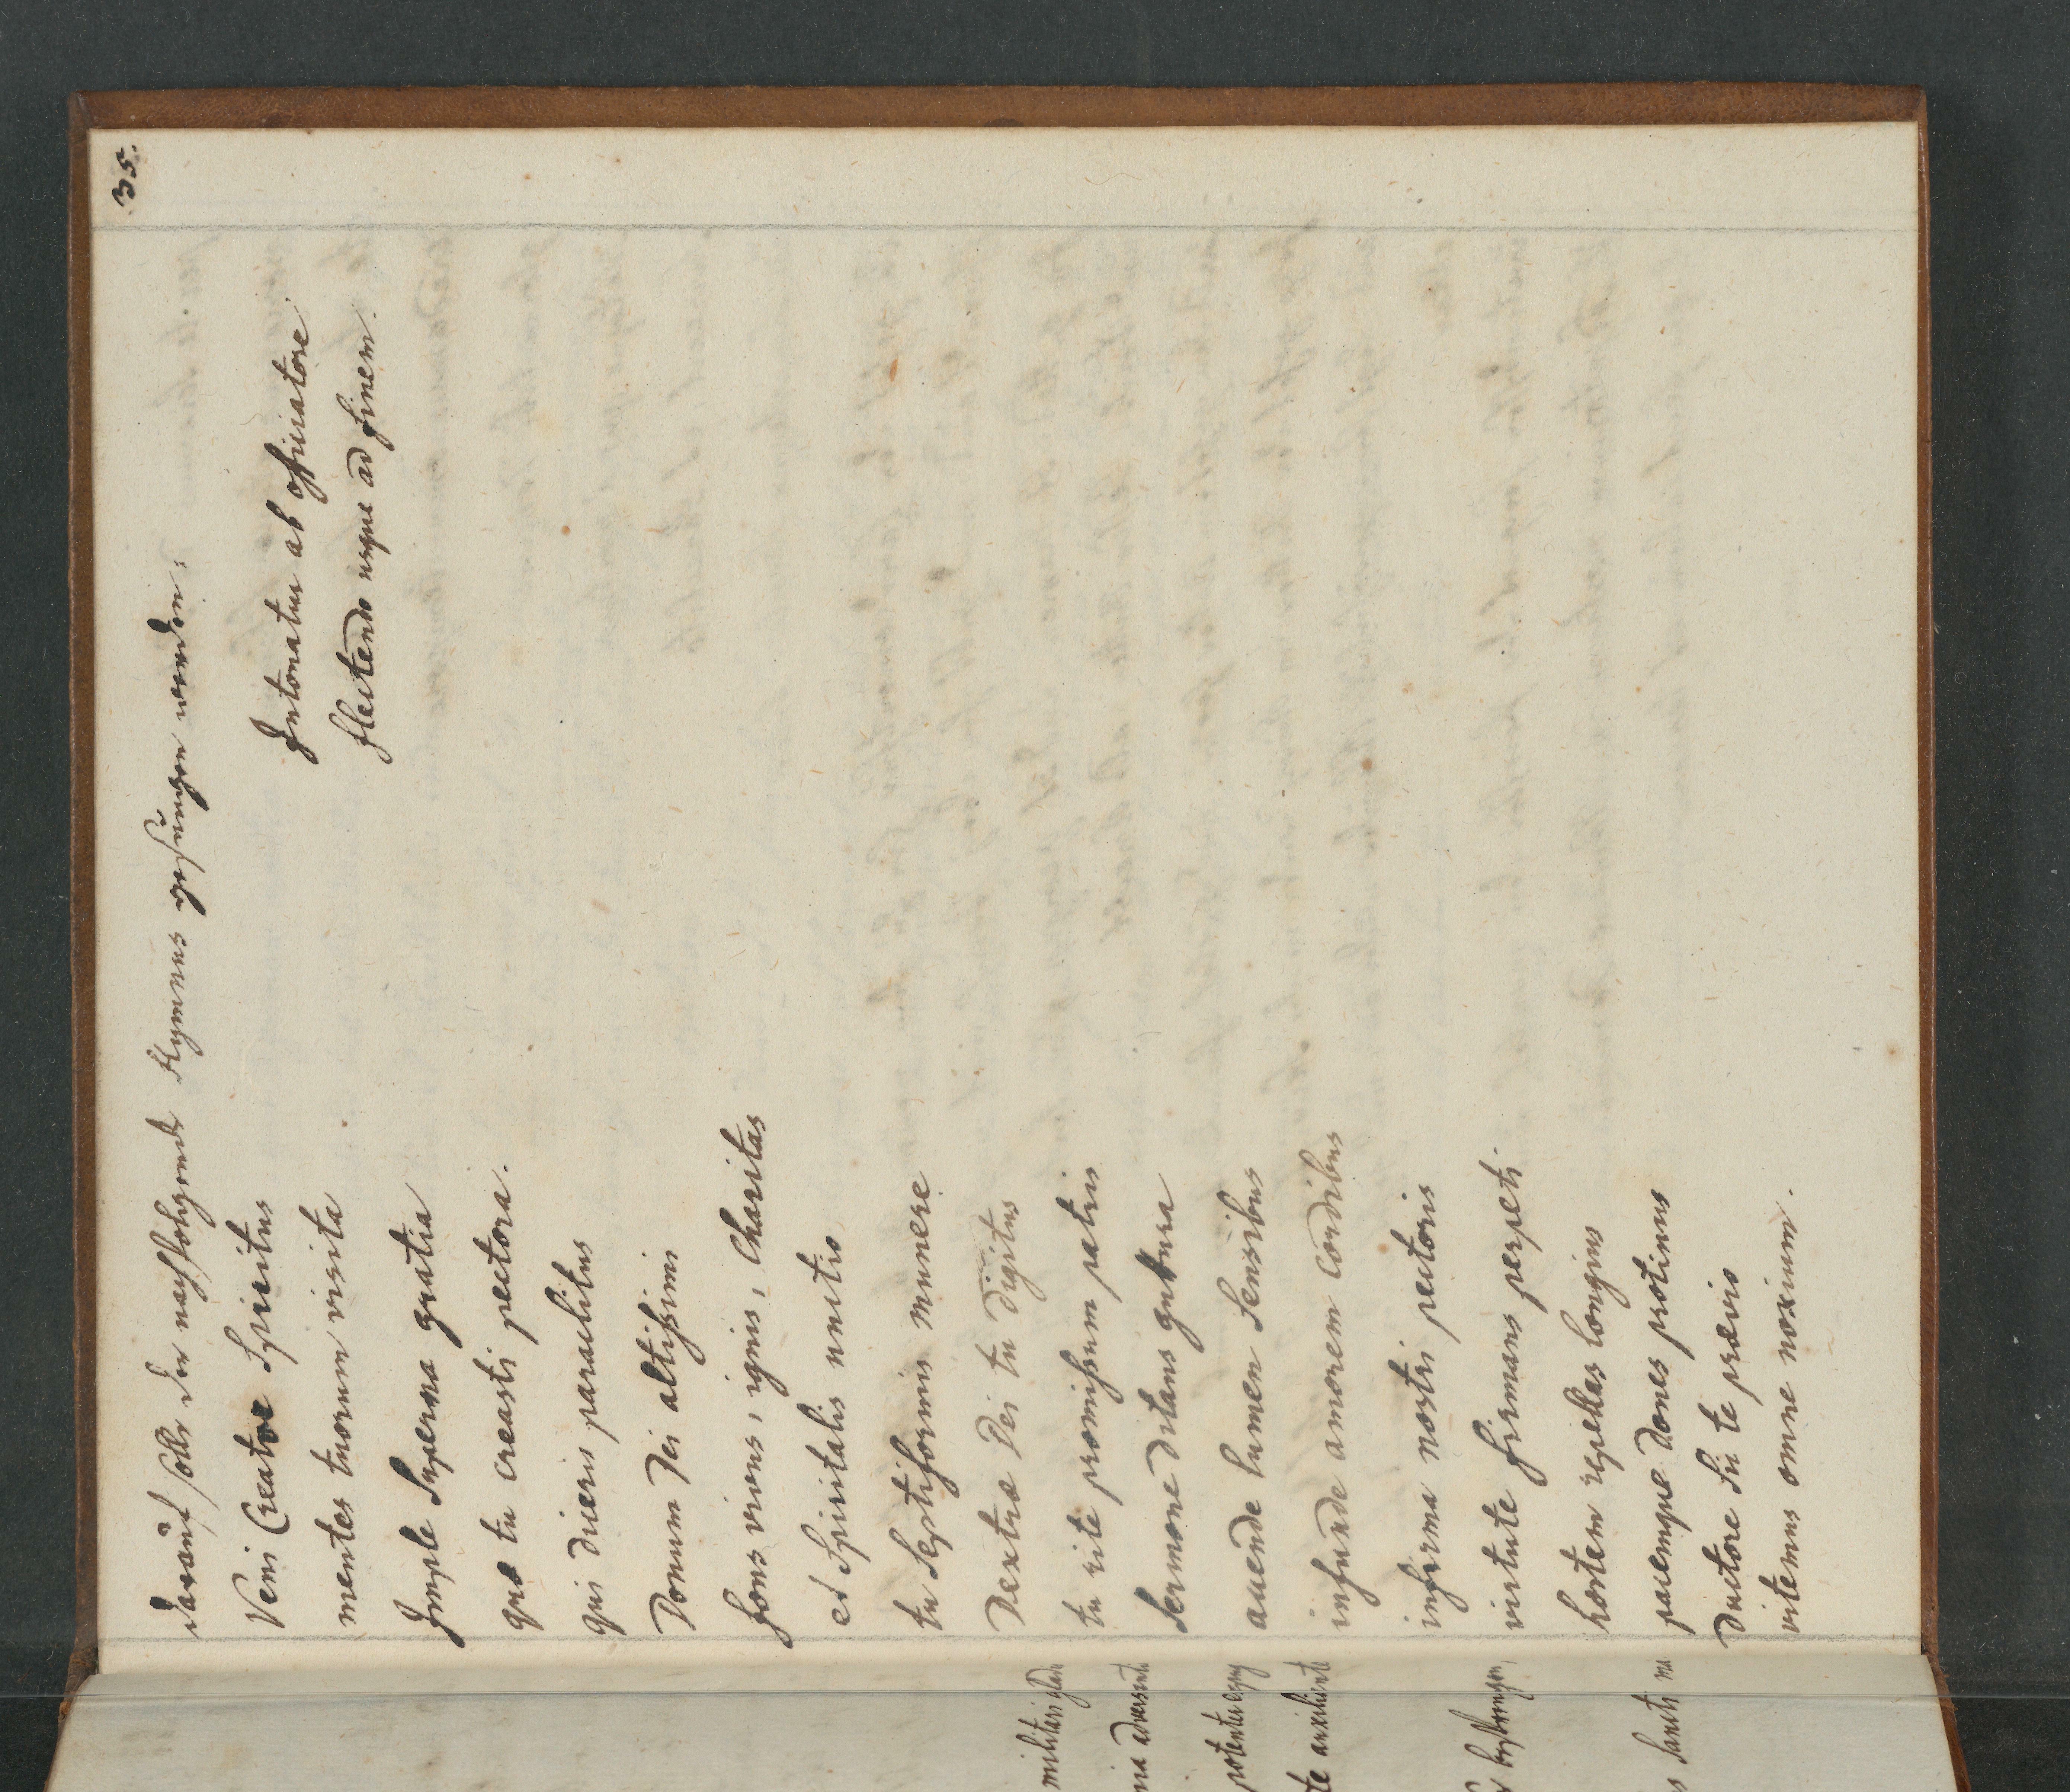 35.
darauf solle der nachfolgende Hymnus gesungen werden:
Veni Creator Spiritus
mentes tuorum visita
Intonatur ab officiatore
flectendo usque ad finem.
Imple Superna gratia
quæ tu creasti pectora.
qui diceris paraclitus
Donum Dei altissimi
fons vivus, ignis, Charitas
et Spiritalis unctio
tu Septiformis munere
Dextræ Dei tu digitus
tu rite promissum patris
Sermone ditans guttura
accende lumen Sensibus
infunde amorem cordibus
infirma nostri pectoris
virtute firmans perpeti
hostem repellas longius
pacemque dones protinus
Ductore Sic te prævio
vitemus omne noxium.
militari
te auxiliante
Sancti